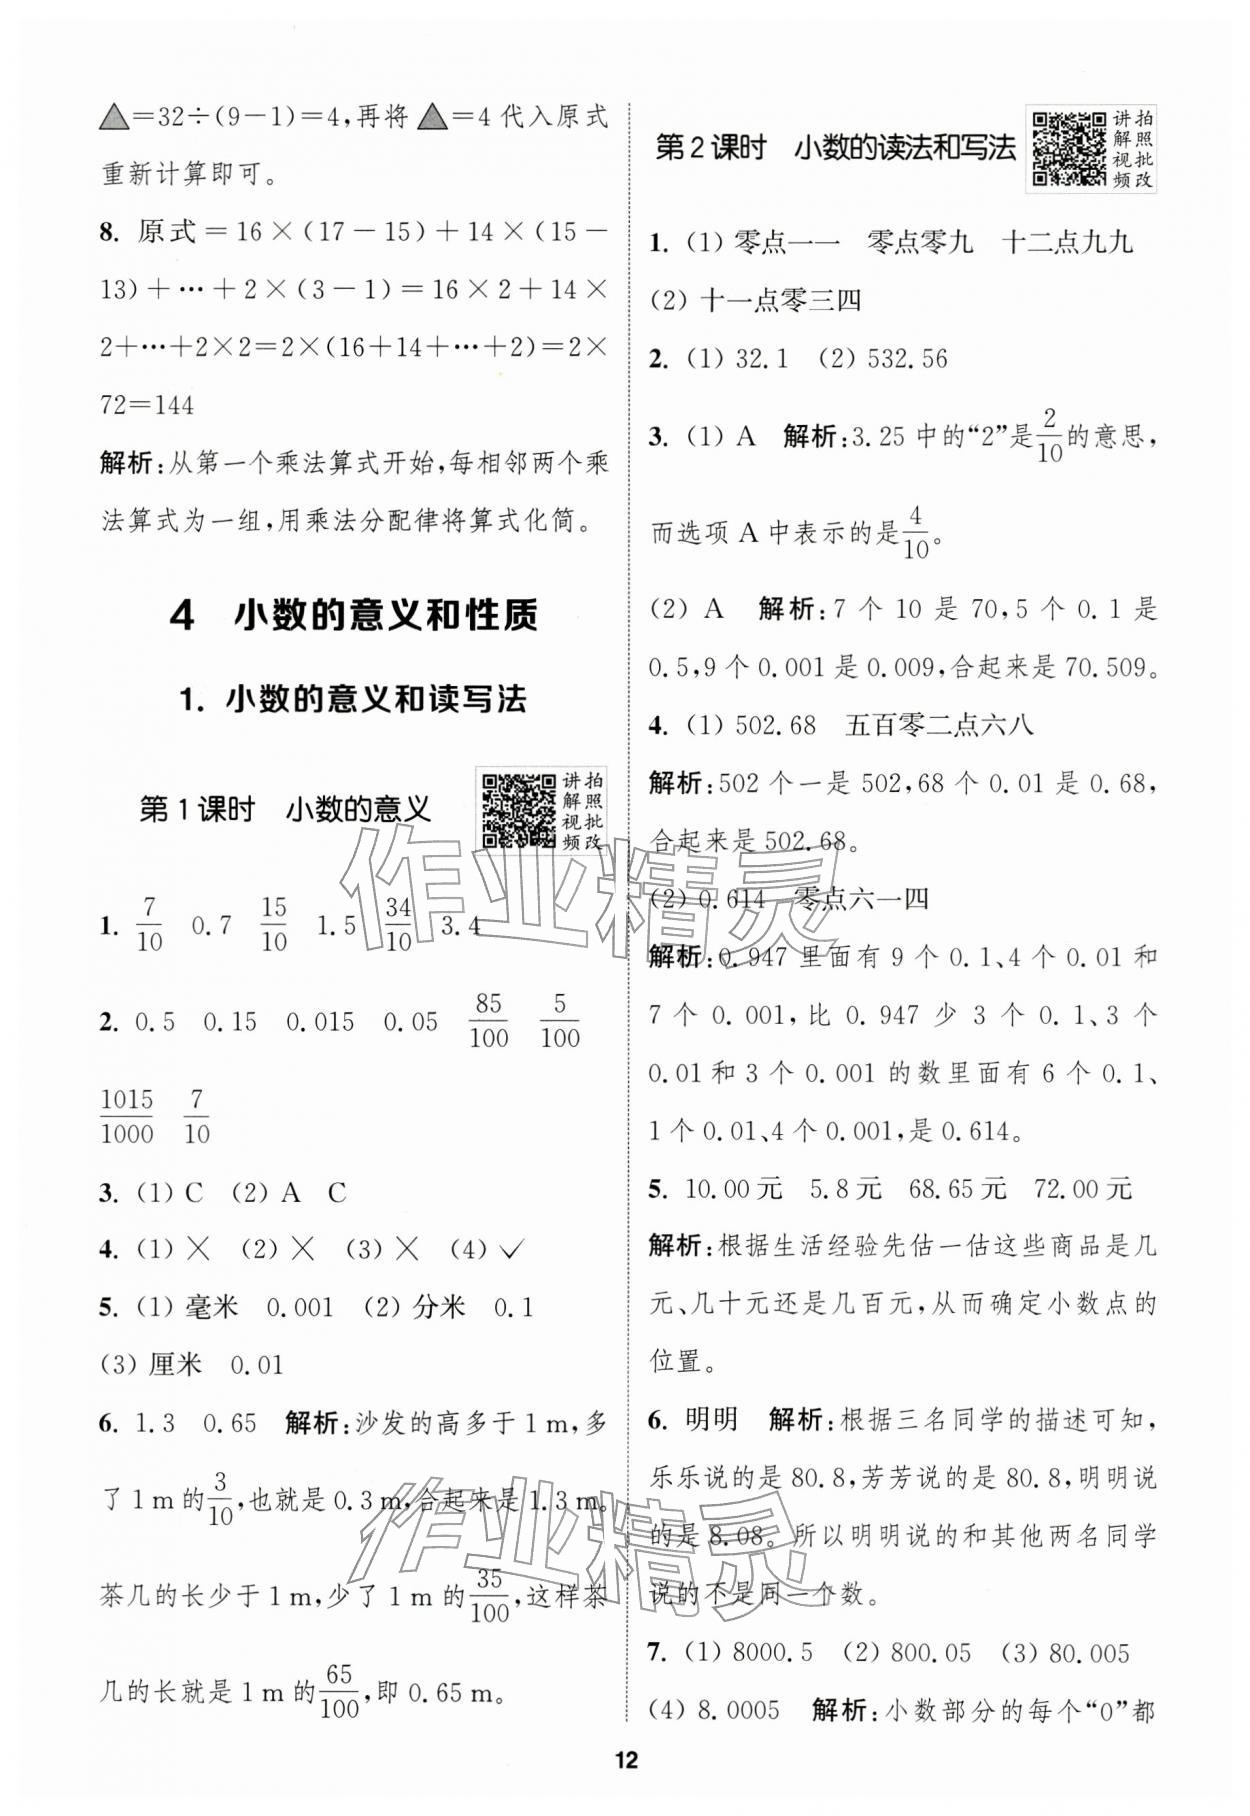 ▲=32÷(9-1)=4,再将▲=4代入原式
重新计算即可。
8. 原式=16×(17-15)+14×(15-
13)+…+2×(3-1)=16×2+14×
2+…+2×2=2×(16+14+…+2)=2×
72=144
解析:从第一个乘法算式开始,每相邻两个乘
法算式为一组,用乘法分配律将算式化简。
4 小数的意义和性质
1. 小数的意义和读写法
第1课时 小数的意义
讲解视频
拍照批改
1. 7/10 0.7 15/10 1.5 34/10 3.4
2. 0.5 0.15 0.015 0.05 85/100 5/100
1015/1000 7/10
3. (1) C (2) A C
4. (1) × (2) × (3) × (4) ✓
5. (1) 毫米 0.001 (2) 分米 0.1
(3) 厘米 0.01
6. 1.3 0.65 解析:沙发的高多于1 m,多
了1 m的3/10,也就是0.3 m,合起来是1.3 m。
茶几的长少于1 m,少了1 m的35/100,这样茶
几的长就是1 m的65/100,即0.65 m。
第2课时 小数的读法和写法
讲解视频
拍照批改
1. (1) 零点一一 零点零九 十二点九九
(2) 十一点零三四
2. (1) 32.1 (2) 532.56
3. (1) A 解析:3.25中的“2”是2/10的意思,
而选项A中表示的是4/10。
(2) A 解析:7个10是70,5个0.1是
0.5,9个0.001是0.009,合起来是70.509。
4. (1) 502.68 五百零二点六八
解析:502个一是502,68个0.01是0.68,
合起来是502.68。
(2) 0.614 零点六一四
解析:0.947里面有9个0.1、4个0.01和
7个0.001,比0.947少3个0.1、3个
0.01和3个0.001的数里面有6个0.1、
1个0.01、4个0.001,是0.614。
5. 10.00元 5.8元 68.65元 72.00元
解析:根据生活经验先估一估这些商品是几
元、几十元还是几百元,从而确定小数点的
位置。
6. 明明 解析:根据三名同学的描述可知,
乐乐说的是80.8,芳芳说的是80.8,明明说
的是8.08。所以明明说的和其他两名同学
说的不是同一个数。
7. (1) 8000.5 (2) 800.05 (3) 80.005
(4) 8.0005 解析:小数部分的每个“0”都
12
作业精灵
作业精灵